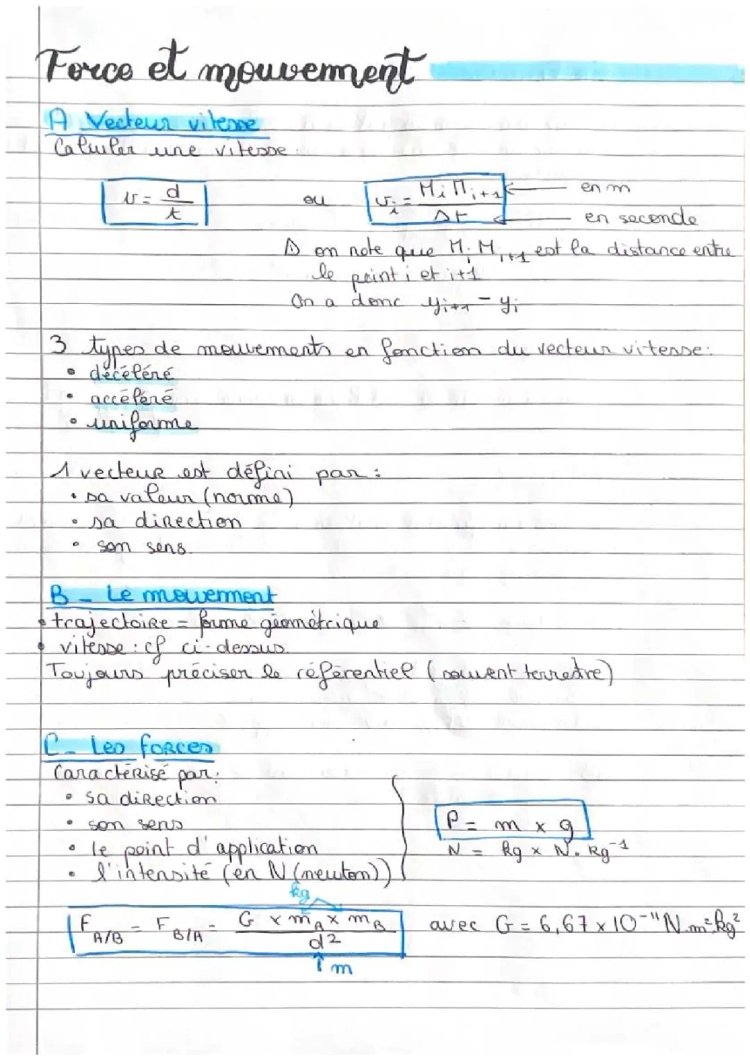 Force et mouvement
A Vecteur vitesse
Calculer une vitesse.
v = d/t ou v_i = M_i M_{i+1} / Δt en m
en seconde
⚠ on note que M_i M_{i+1} est la distance entre
le point i et i+1
On a donc y_{i+1} - y_i
3 types de mouvements en fonction du vecteur vitesse:
• décéléré
• accéléré
• uniforme
1 vecteur est défini par :
• sa valeur (norme)
• sa direction
• son sens.
B - Le mouvement
• trajectoire = forme géométrique
• vitesse : cf ci-dessus.
Toujours préciser le référentiel (souvent terrestre)
C - Les forces
Caractérisé par:
• sa direction
• son sens
• le point d'application
• l'intensité (en N (newton))
P = m x g
N = kg x N.kg⁻¹
kg
F_{A/B} = F_{B/A} = G x m_A x m_B / d² avec G = 6,67 x 10⁻¹¹ N.m².kg²
m